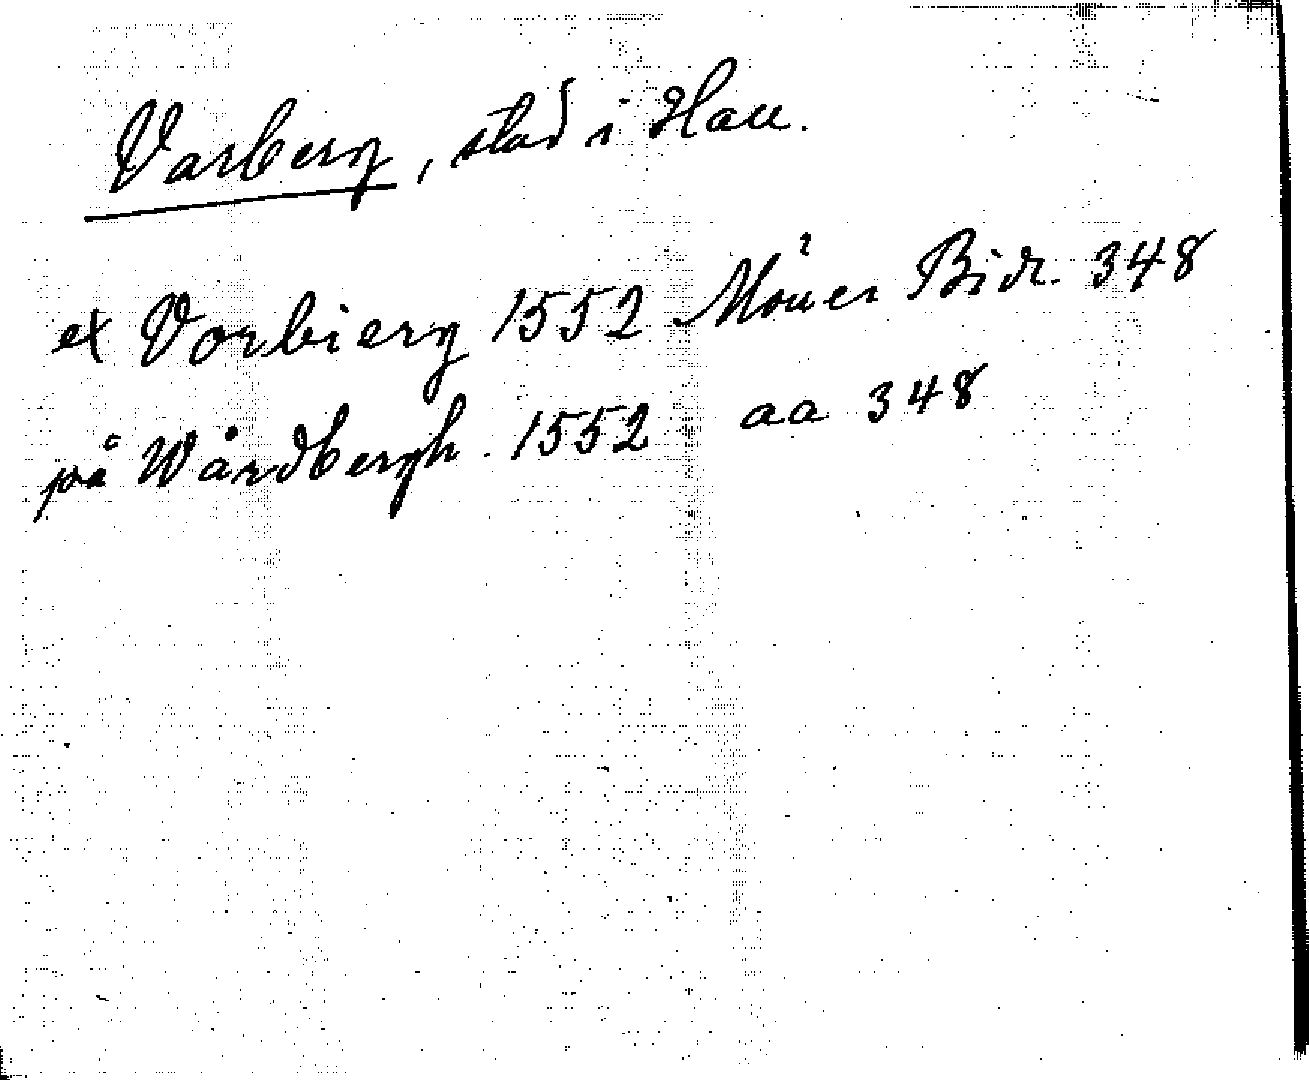 Varberg, stad i Hall.
ex Vorbierg 1552 Bidr. 348
på Wårdbergh. 1552. aa 348